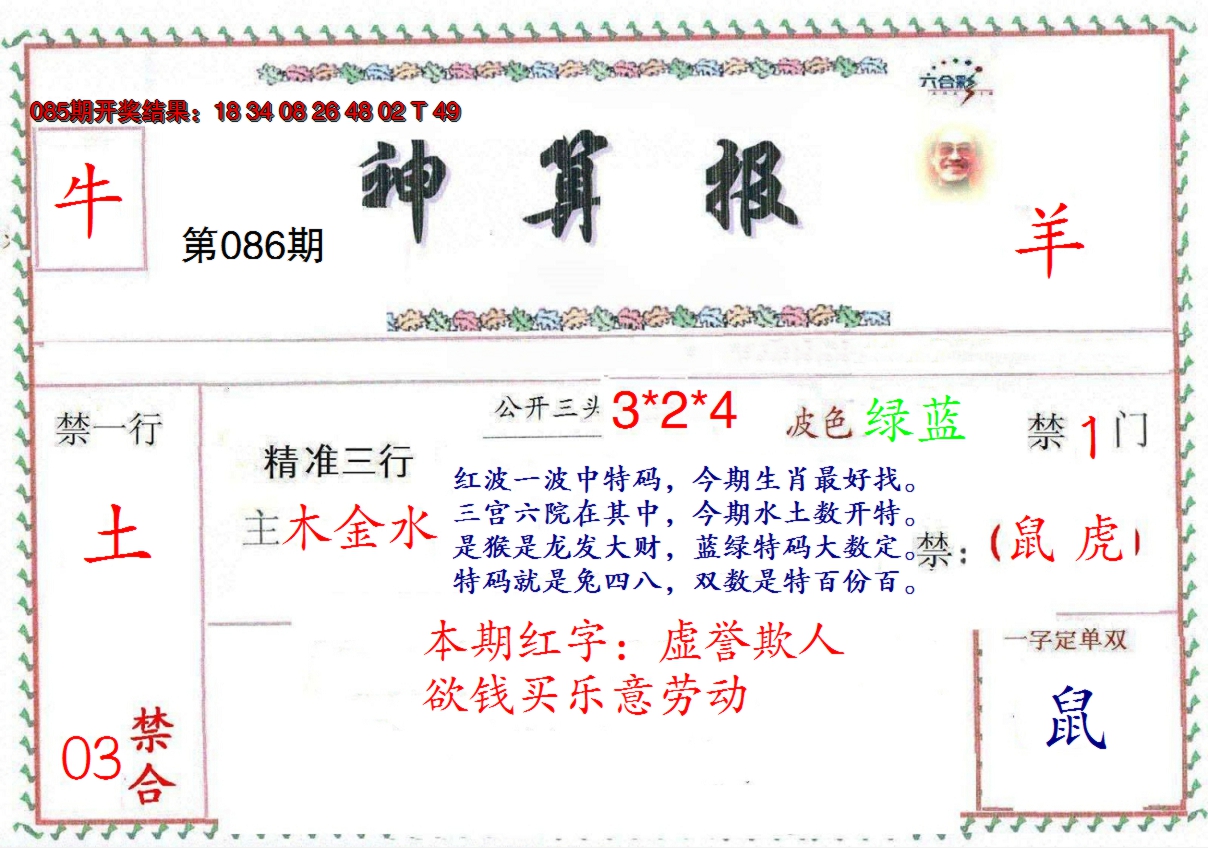 六合彩
085期开奖结果：18 34 08 26 48 02 T 49
牛
神算报
第086期
羊
禁一行
土
03
禁合
精准三行
主木金水
公开三头 3*2*4
波色 绿蓝
红波一波中特码，今期生肖最好找。
三宫六院在其中，今期水土数开特。
是猴是龙发大财，蓝绿特码大数定。
特码就是兔四八，双数是特百份百。
禁1门
禁：（鼠 虎）
本期红字：虚誉欺人
欲钱买乐意劳动
一字定单双
鼠